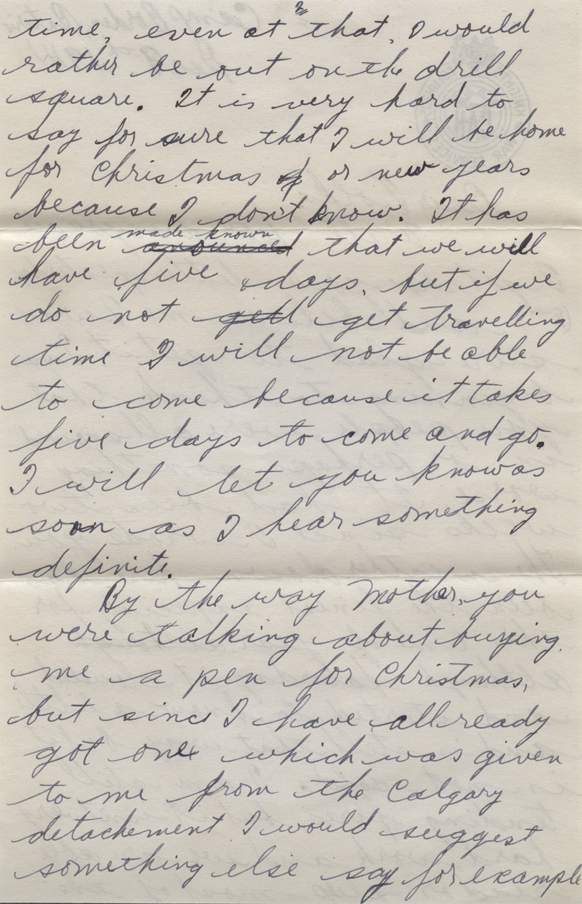 2
time, even at that, I would
rather be out on the drill
square. It is very hard to
say for sure that I will be home
for Christmas or new years
because I don't know. It has
been made known anounced that we will
have five days, but if we
do not get travelling
time I will not be able
to come because it takes
five days to come and go.
I will let you know as
soon as I hear something
definite.
By the way Mother, you
were talking about buying
me a pen for Christmas,
but since I have allready
got one which was given
to me from the Calgary
detachement I would suggest
something else say for example